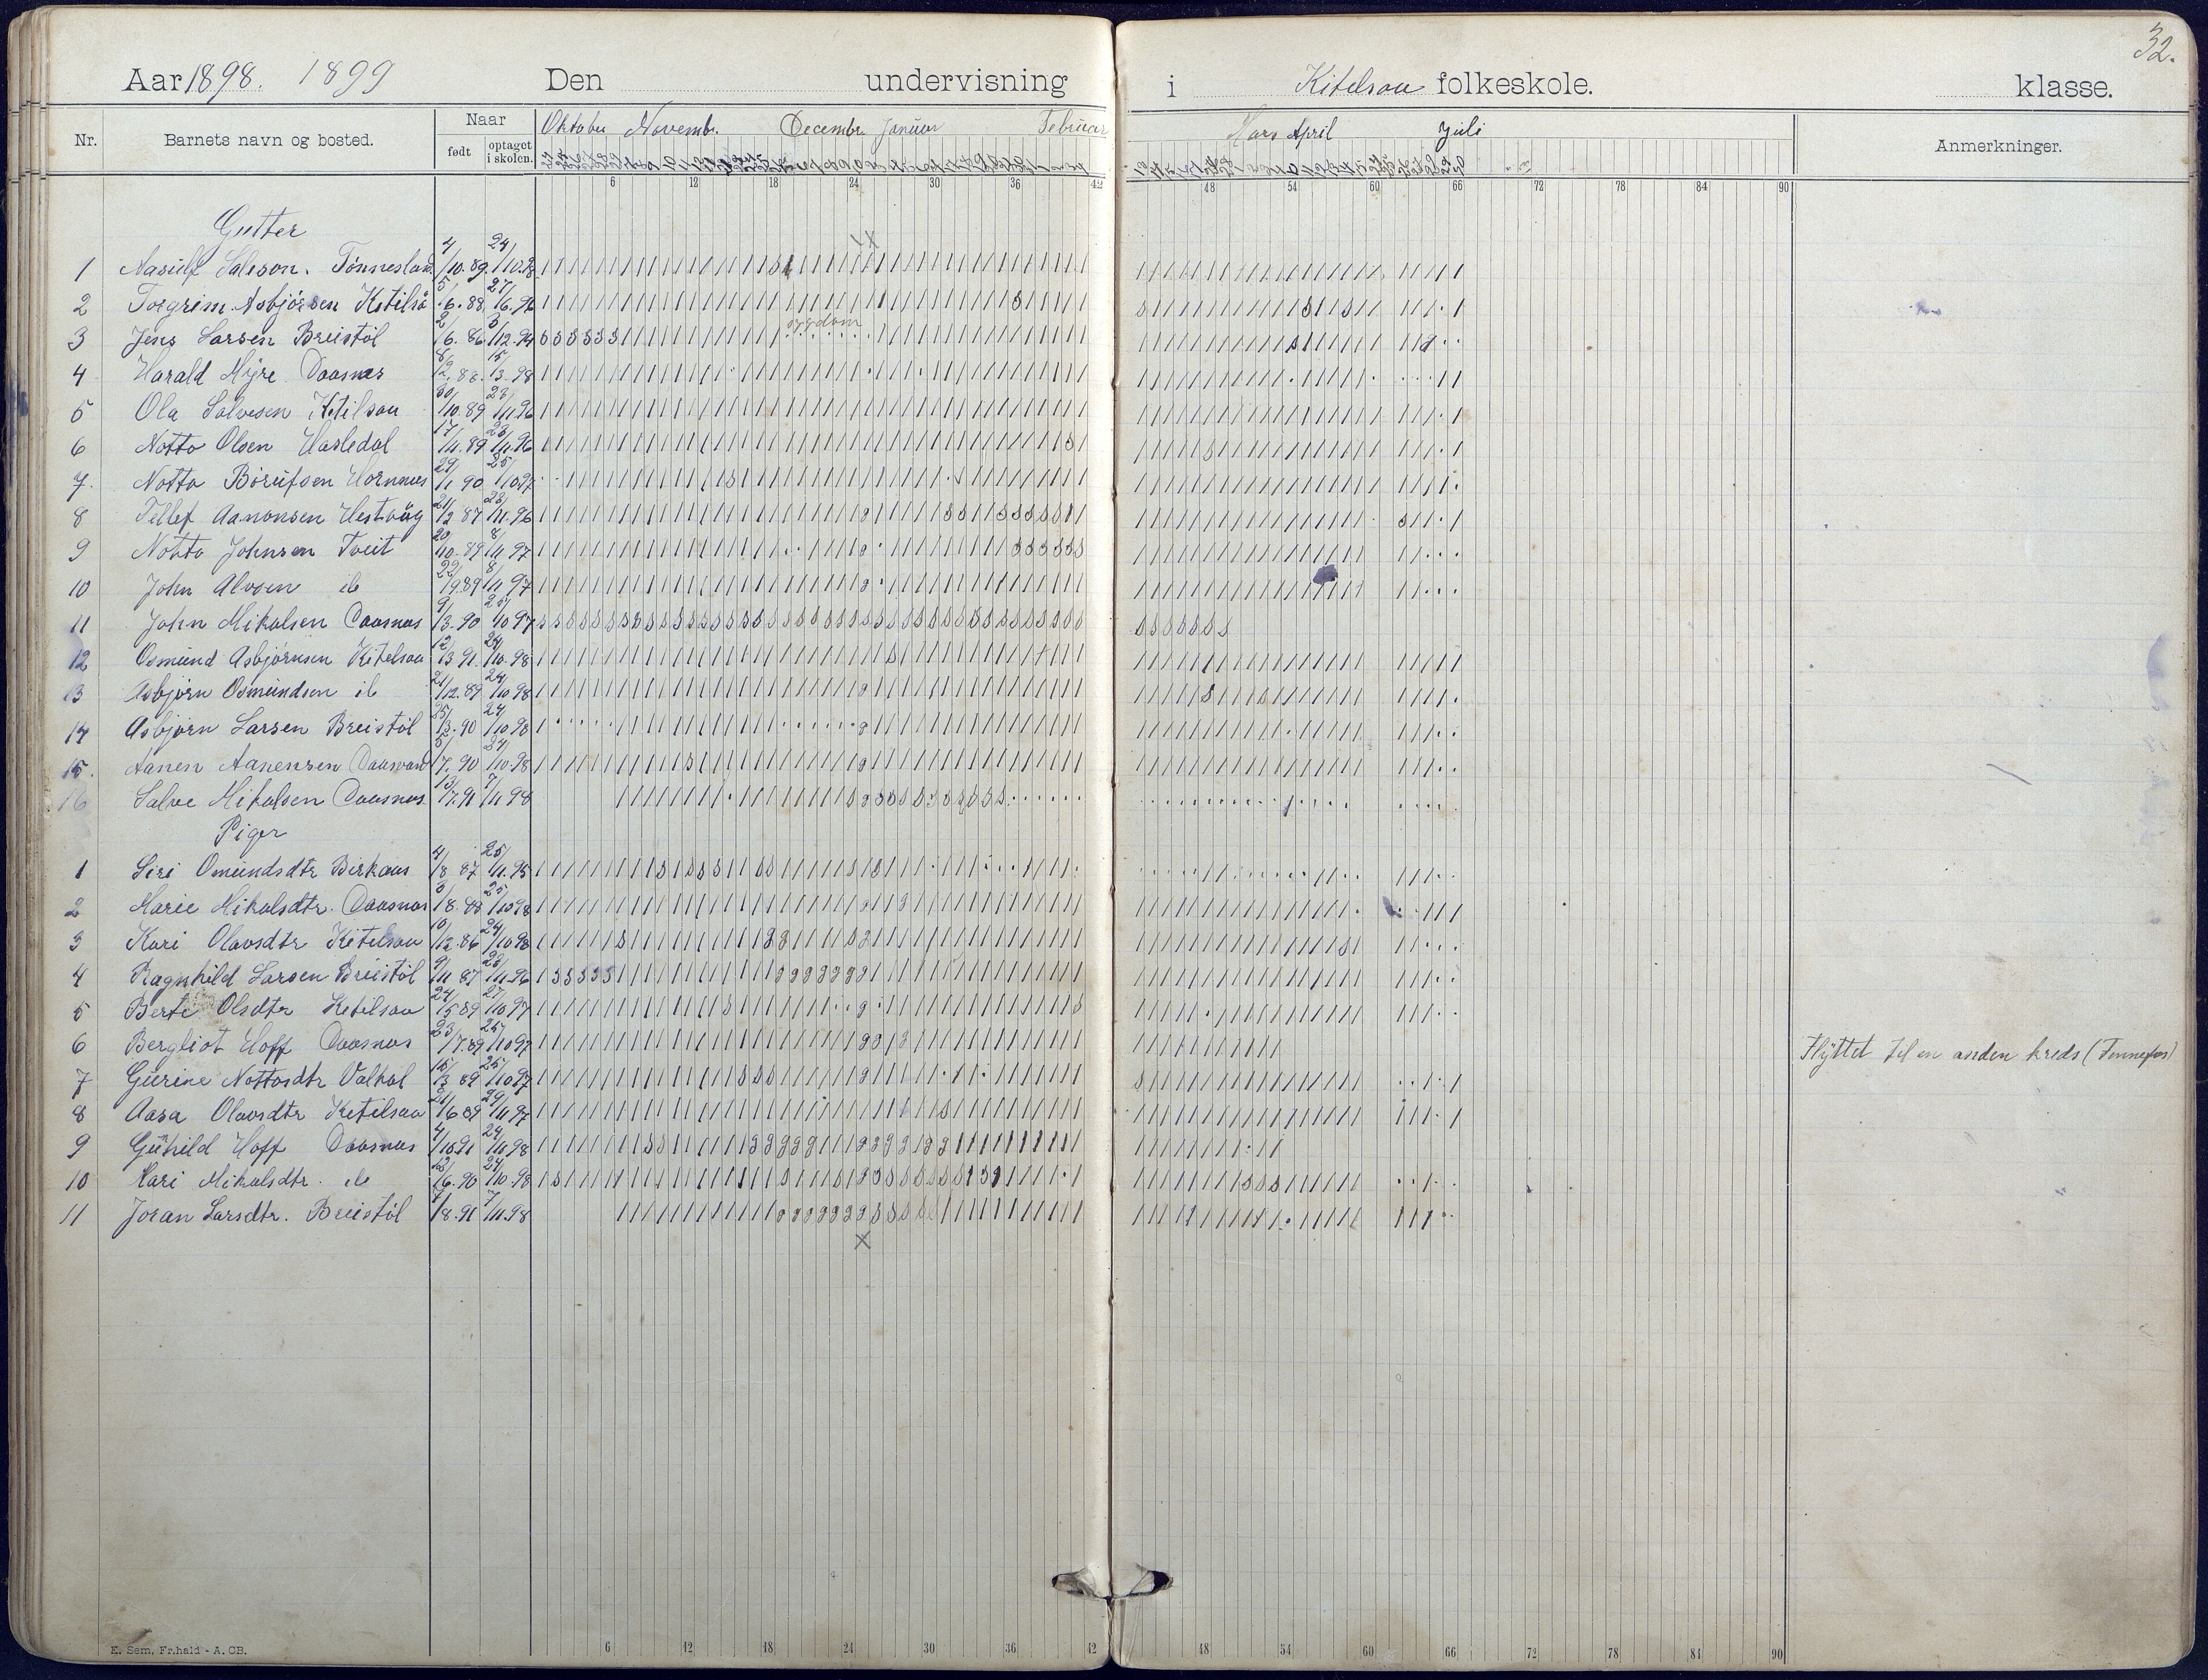 32.
Aar 1898. 1899 Den undervisning i Kitelsaa folkeskole. klasse.
Nr. Barnets navn og bosted. Naar født optaget i skolen. Oktober Novembr. Decembr. Januar Februar Mars April Juli Anmerkninger.
6 12 18 24 30 36 42 48 54 60 66 72 78 84 90
Gutter
1 Aasulf Salvson. Tönnesland 4/10.89. 24/10.98
2 Torgrim Asbjörsen Ketilså 5/6.88. 27/6.96
3 Jens Larsen Breistöl 2/6.86 3/12.94 sygdom
4 Harald Myre Daasnes 8/12.88. 15/3.98
5 Ola Salvesen Ketilsaa 30/10.89 23/11.96
6 Notto Olsen Hasledal 17/11.89 23/11.96
7. Notto Börufsen Hornnes 29/1 90 25/10.97
8 Tellef Aanonsen Hestvåg 21/12 87 23/11.96
9 Notto Johnsen Tveit 20/10.89 8/11 97
10 John Alvsen ib 22/9 89 8/11 97
11 John Mikalsen Daasnes 9/3.90 25/10 97
12 Osmund Asbjörnsen Kitelsaa 12/3 91 24/10.98
13 Asbjörn Osmundsen ib 21/12.89 24/10 98
14 Asbjörn Larsen Breistöl 25/3.90 24/10 98
15. Aanen Aanensen Daasvand 5/7.90 24/10.98
16 Salve Mikalsen Daasnes 13/7.91 7/11 98
Piger
1 Siri Omundsdtr Birkaas 4/8 87 25/11.95
2 Marie Mikalsdtr. Daasnes 3/8.88 25/10 98
3 Kari Olavsdtr Ketilsaa 10/12.86 24/10 98
4 Ragnhild Larsen Breistöl 9/11 87 23/11.96
5 Berte Olsdtr Ketilsaa 24/5 89 27/10 97
6 Bergliot Hoff Daasnes 23/7.89 25/10 97 Flyttet til en anden kreds (Fennefos)
7 Gurine Nottosdtr Valkal 15/3 89 25/10 97
8 Aasa Olavsdtr Ketilsaa 21/6 89 29/11 97
9 Gunhild Hoff Daasnes 4/10.91 24/10.98
10 Kari Mikalsdtr. ib 12/6.90 24/10.98
11 Joran Larsdtr. Breistöl 7/8.91 7/11.98
E. Sem, Fr.hald - A. CB.
6 12 18 24 30 36 42 48 54 60 66 72 78 84 90